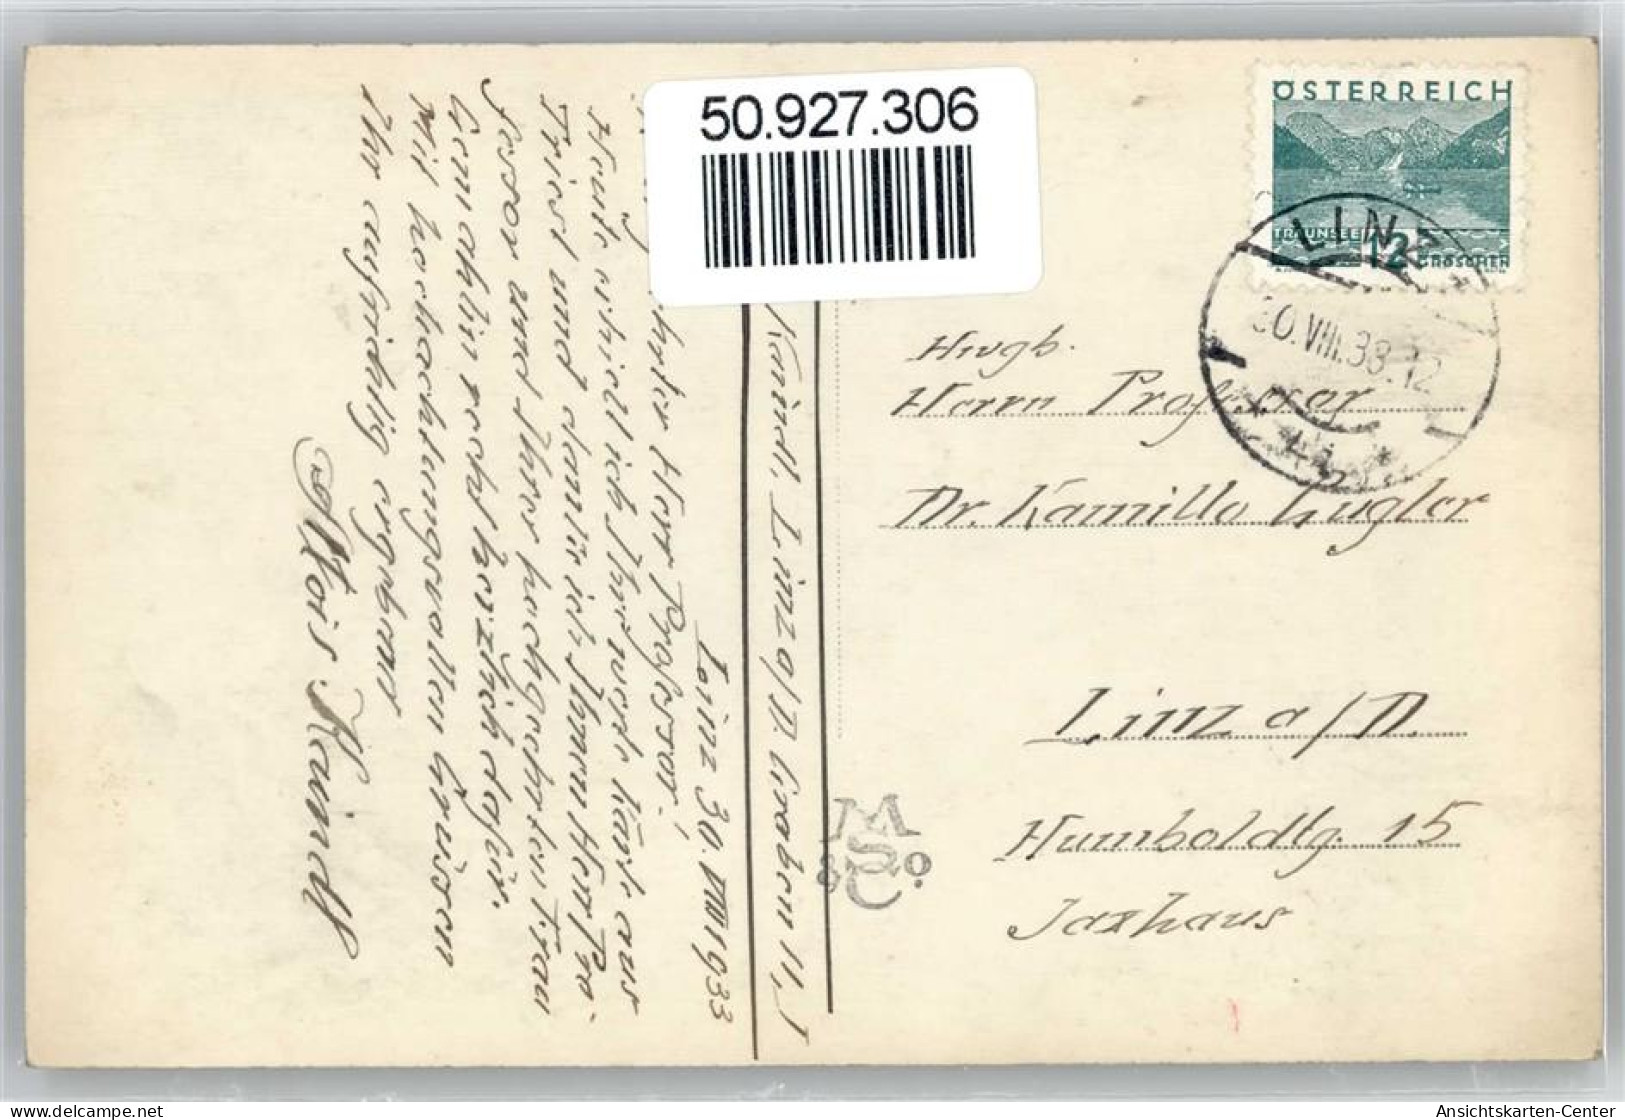 50.927.306
ÖSTERREICH
TRAUNSEE 12 GROSCHEN
LINZ
30.VIII.33.12
Linz 30.VIII 1933
Herr Professor!
Heute erhielt ich Ihre werte Karte aus
Tirol und danke ich Ihnen Herr Pro-
fessor und Ihrer hochgeehrten Frau
Gemahlin recht herzlich dafür.
Mit hochachtungsvollen Grüßen
Ihr aufrichtig ergebener
Alois Kaindl
Kaindl, Linz a/D. Graben 11, I
Hwgb.
Herrn Professor
Dr. Kamillo Gugler
Linz a/D.
Humboldtg. 15
Jaxhaus
MS&Co.
www.ansichtskarten-center.de
Ansichtskarten-Center